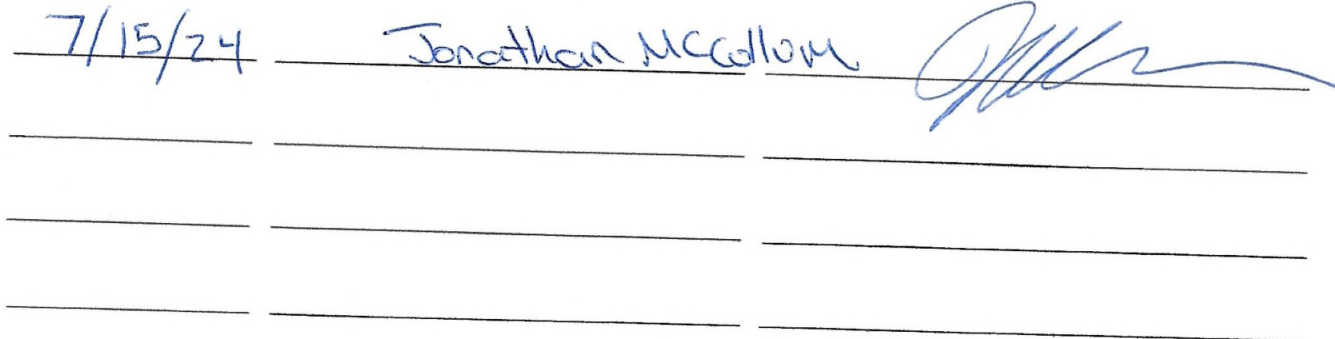 7/15/24 Jonathan McCollum